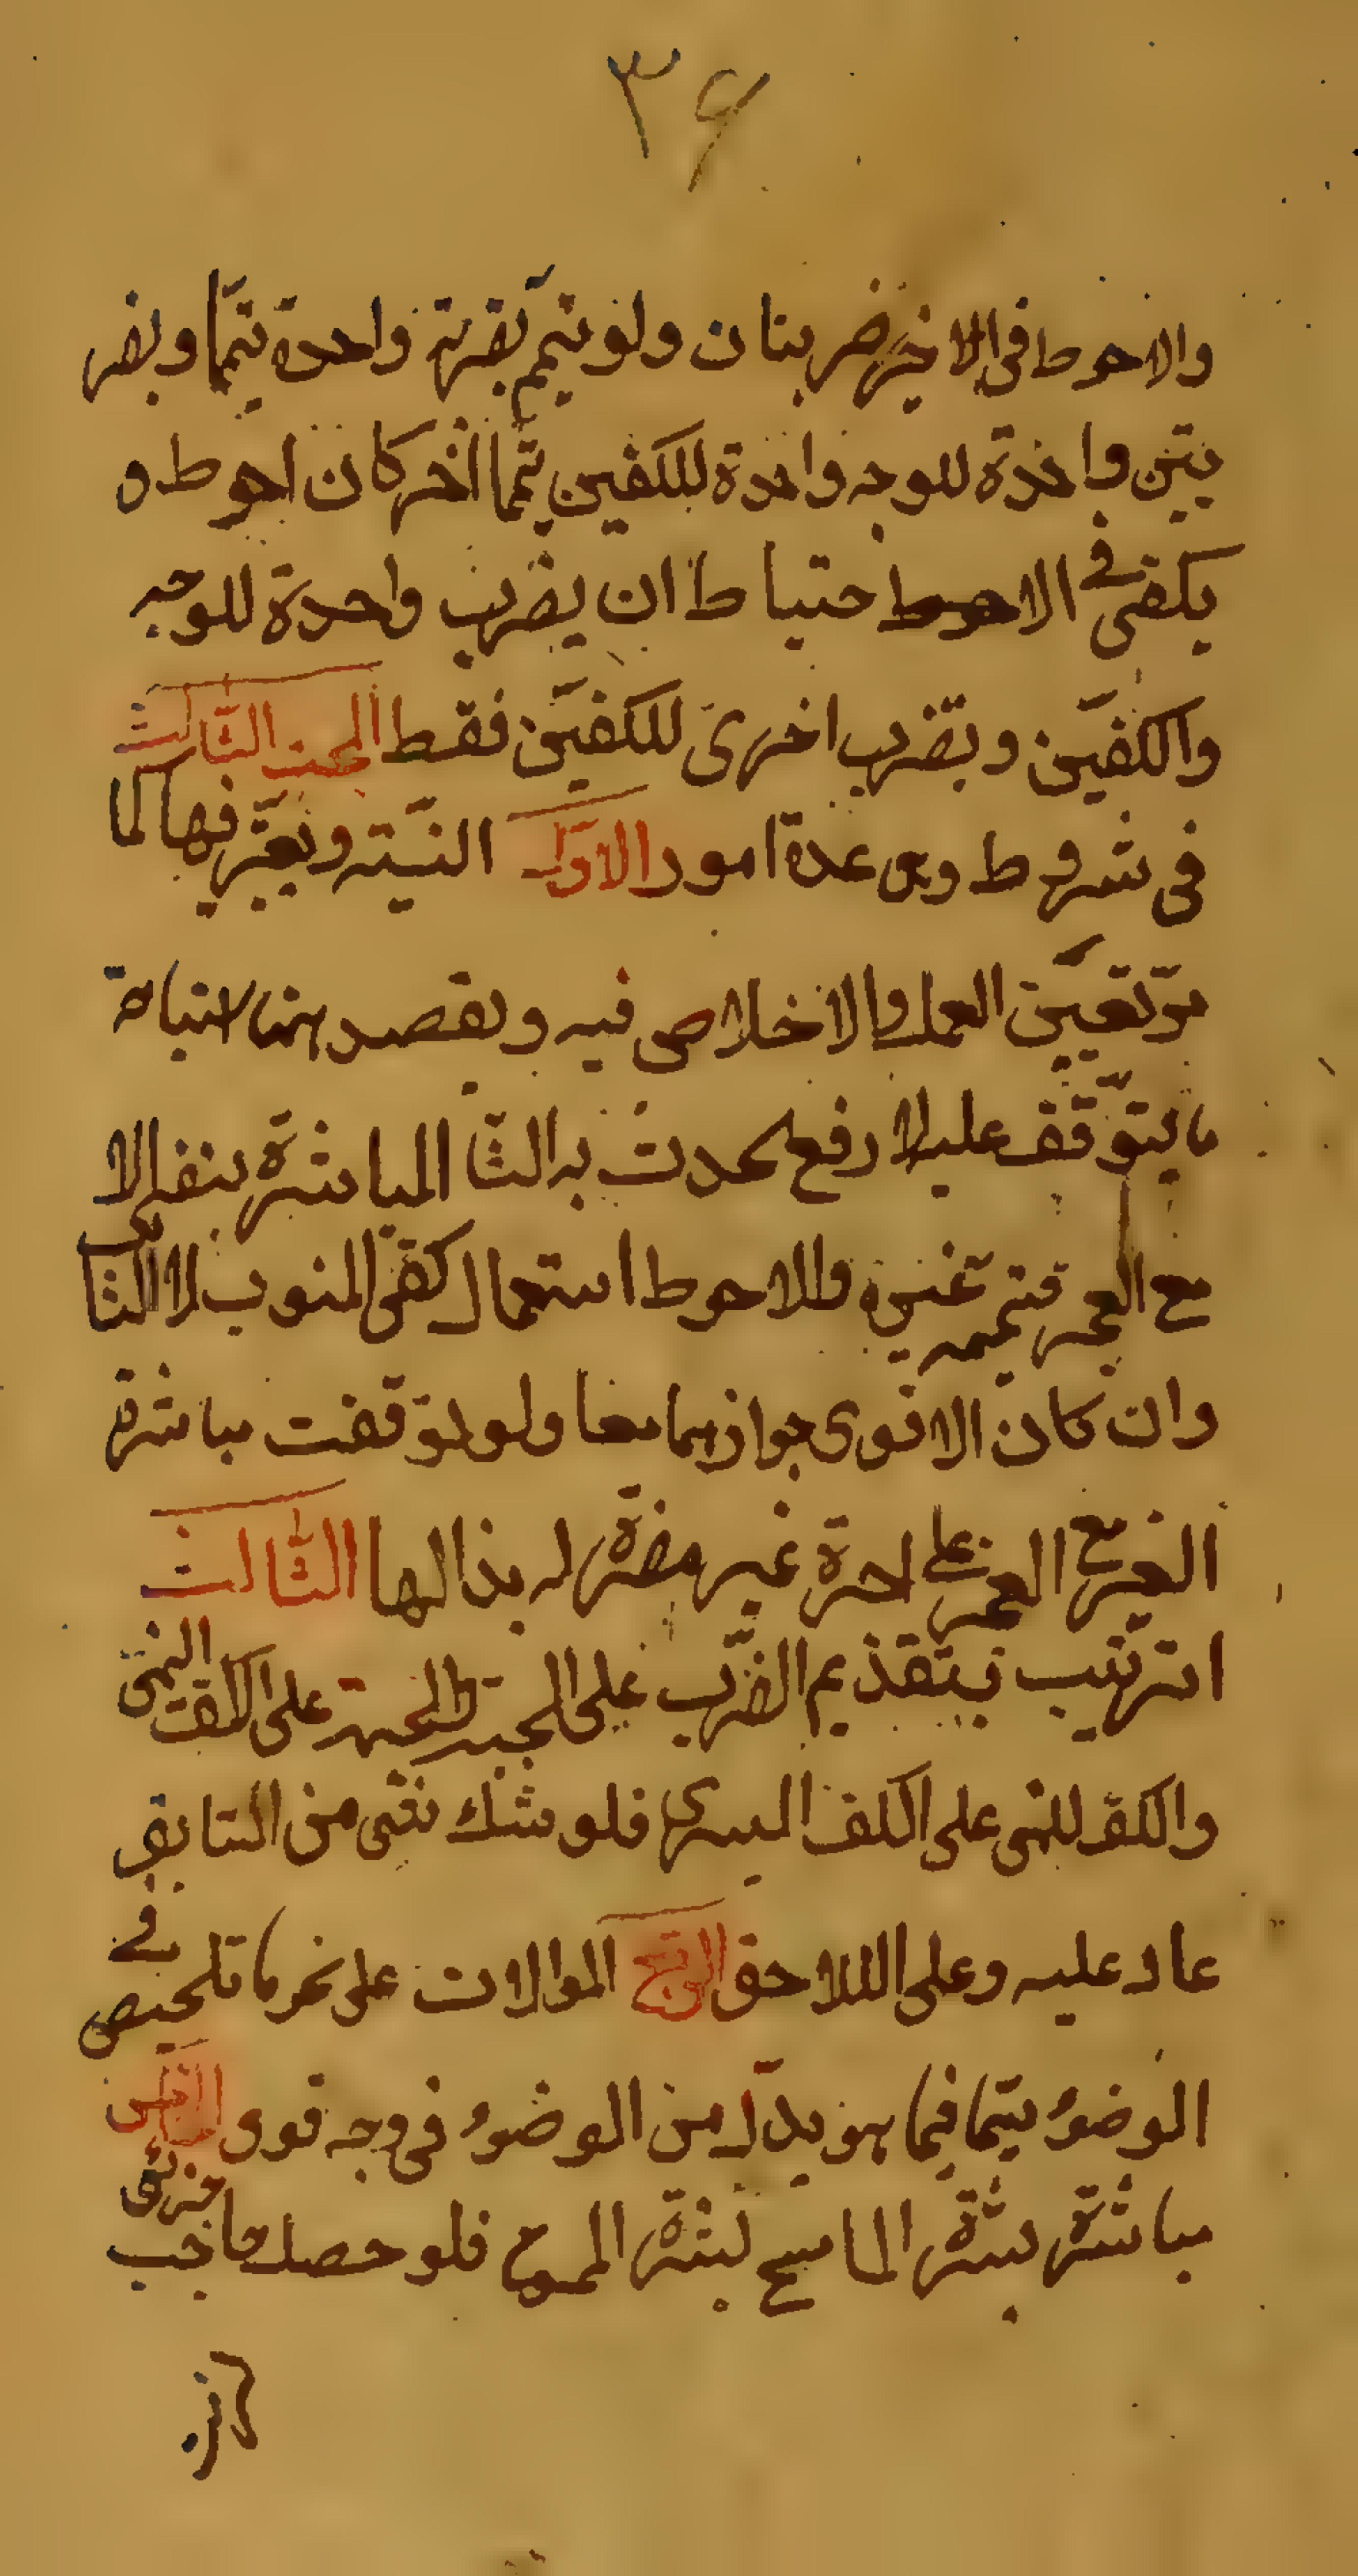 ٣۶
والاحوط فى الاخير ضربتان ولو تيمم بضربة واحدة تيمّما وبضر
بتين واحدة للوجه واحدة للكفين تيمّما اخر كان احوط و
يكفى فى الاحوط احتياط ان يضرب واحدة للوجه
والكفيّن ويضرب اخرى للكفيّن فقط المبحث الثالث
فى شروط وهى عدة امور الاوّل النيّة ويعتبر فيها كما
مرّ تعيين العمل والاخلاص فيه ويقصد بها استباحة
ما يتوقّف عليه لا رفع الحدث به الثا المباشرة بنفسه الا
مع العجز فتيممه غيره والاحوط استعمال كفى المنوب لا النائب
وان كان الاقوى جوازهما معا ولو توقفت مباشرة
الغير مع العجز على اجرة غير مضرّة له بذالها الثّالث
الترتيب بتقديم الضّرب على الجبهة والجبهة على الكف اليمنى
والكف اليمنى على الكف اليسرى فلو شك فى شى من السّابق
عاد عليه وعلى اللاحق الرابع الموالات على نحو ما تلخيص فى
الوضوء تيمّما فيما هو بدّل من الوضوء فى وجه قوى الخامس
مباشرة بشرة الماسح لبشرة الممسوح فلو حصل حاجب جزئى